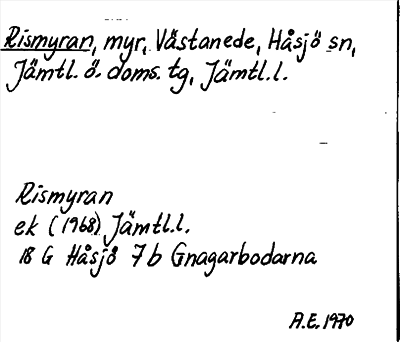 Rismyran, myr, Västanede, Håsjö sn,
Jämtl. ö. doms. tg, Jämtl.l.
Rismyran
ek (1968) Jämtl.l.
18 G Håsjö 7 b Gnagarbodarna
A.E. 1970